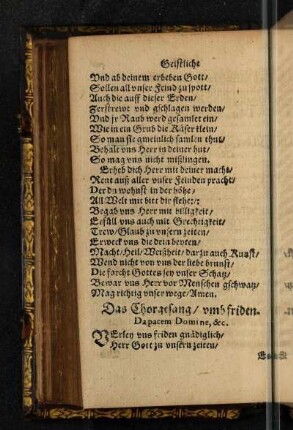 Geistliche
Vnd ab deinem erheben Gott/
Sollen all vnser Feind zu spott/
Auch die auff dieser Erden/
Zerstrewt vnd gschlagen werden/
Vnd jr Raub werd gesamlet ein/
Wie in ein Grub die Käfer klein/
So man sie gmeinlich samlen thut/
Behalt vns Herr in deiner hut/
So mag vns nicht mißlingen.
Erheb dich Herr mit deiner macht/
Reut auß aller vnser Feinden pracht/
Der du wohnst in der höhe/
All Welt mit bitt dir flehet:
Begab vns Herr mit billigkeit/
Erfüll vns auch mit Grechtigkeit/
Trew/Glaub zu vnsern zeiten/
Erweck vns die drin beyten/
Macht/Heil/Weißheit/darzu auch Kunst/
Wend nicht von vns der liebe brunst/
Die forcht Gottes sey vnser Schatz/
Bewar vns Herr vor Menschen gschwatz/
Mag richtig vnser wege/Amen.
Das Chorgesang/ vmb friden.
Da pacem Domine, &c.
VErley vns friden gnädiglich/
Herr Gott zu vnsern zeiten/